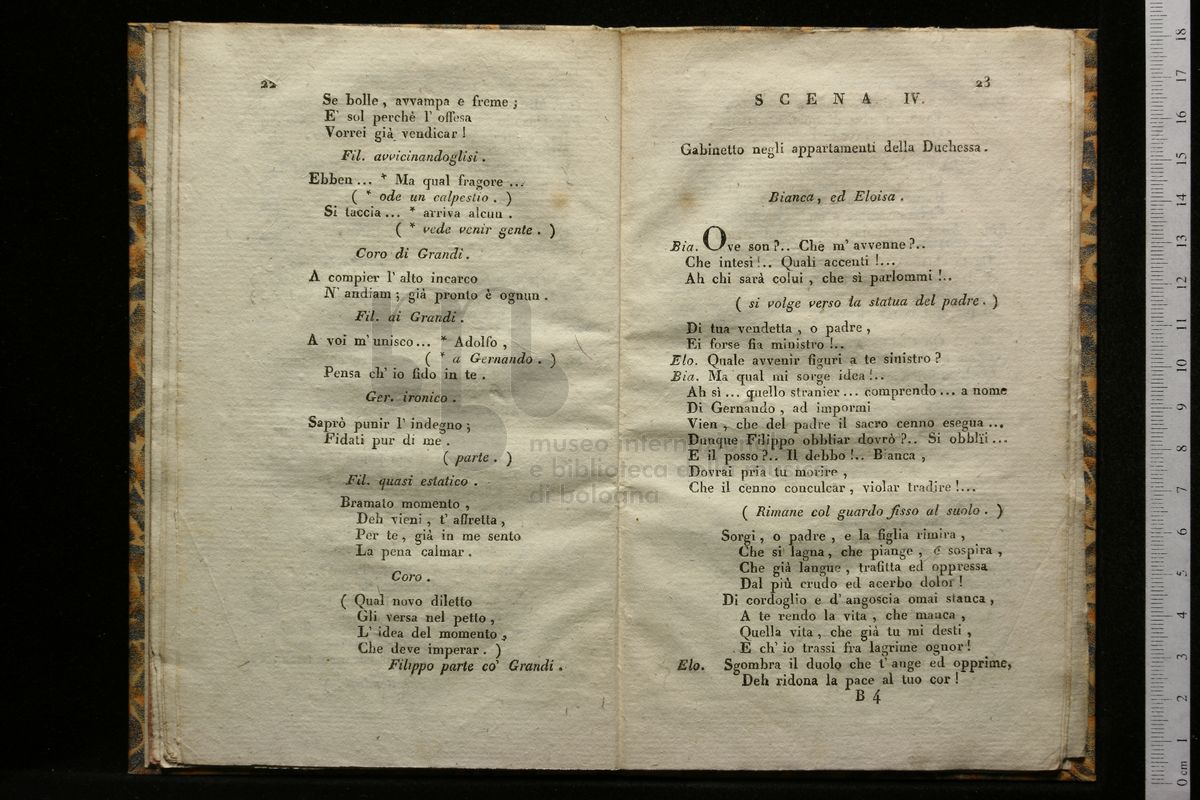 22
Se bolle, avvampa e freme;
E' sol perchè l' offesa
Vorrei già vendicar!
Fil. avvicinandoglisi.
Ebben... * Ma qual fragore...
( * ode un calpestio. )
Si taccia... * arriva alcun.
( * vede venir gente. )
Coro di Grandi.
A compier l' alto incarco
N' andiam; già pronto è ognun.
Fil. ai Grandi.
A voi m' unisco... * Adolfo,
( * a Gernando. )
Pensa ch' io fido in te.
Ger. ironico.
Saprò punir l' indegno;
Fidati pur di me.
( parte. )
Fil. quasi estatico.
Bramato momento,
Deh vieni, t' affretta,
Per te, già in me sento
La pena calmar.
Coro.
( Qual novo diletto
Gli versa nel petto,
L' idea del momento,
Che deve imperar. )
Filippo parte co' Grandi.
23
SCENA IV.
Gabinetto negli appartamenti della Duchessa.
Bianca, ed Eloisa.
Bia. Ove son?.. Che m' avvenne?..
Che intesi!.. Quali accenti!...
Ah chi sarà colui, che sì parlommi!..
( si volge verso la statua del padre. )
Di tua vendetta, o padre,
Ei forse fia ministro!..
Elo. Quale avvenir figuri a te sinistro?
Bia. Ma qual mi sorge idea!..
Ah sì... quello stranier... comprendo... a nome
Di Gernando, ad impormi
Vien, che del padre il sacro cenno esegua...
Dunque Filippo obbliar dovrò?.. Si obblïi...
E il posso?.. Il debbo!.. Bianca,
Dovrai pria tu morire,
Che il cenno conculcar, violar tradire!...
( Rimane col guardo fisso al suolo. )
Sorgi, o padre, e la figlia rimira,
Che si lagna, che piange, e sospira,
Che già langue, trafitta ed oppressa
Dal più crudo ed acerbo dolor!
Di cordoglio e d' angoscia omai stanca,
A te rendo la vita, che manca,
Quella vita, che già tu mi desti,
E ch' io trassi fra lagrime ognor!
Elo. Sgombra il duolo che t' ange ed opprime,
Deh ridona la pace al tuo cor!
B 4
museo internazionale
e biblioteca della musica
di bologna
0 cm 1 2 3 4 5 6 7 8 9 10 11 12 13 14 15 16 17 18